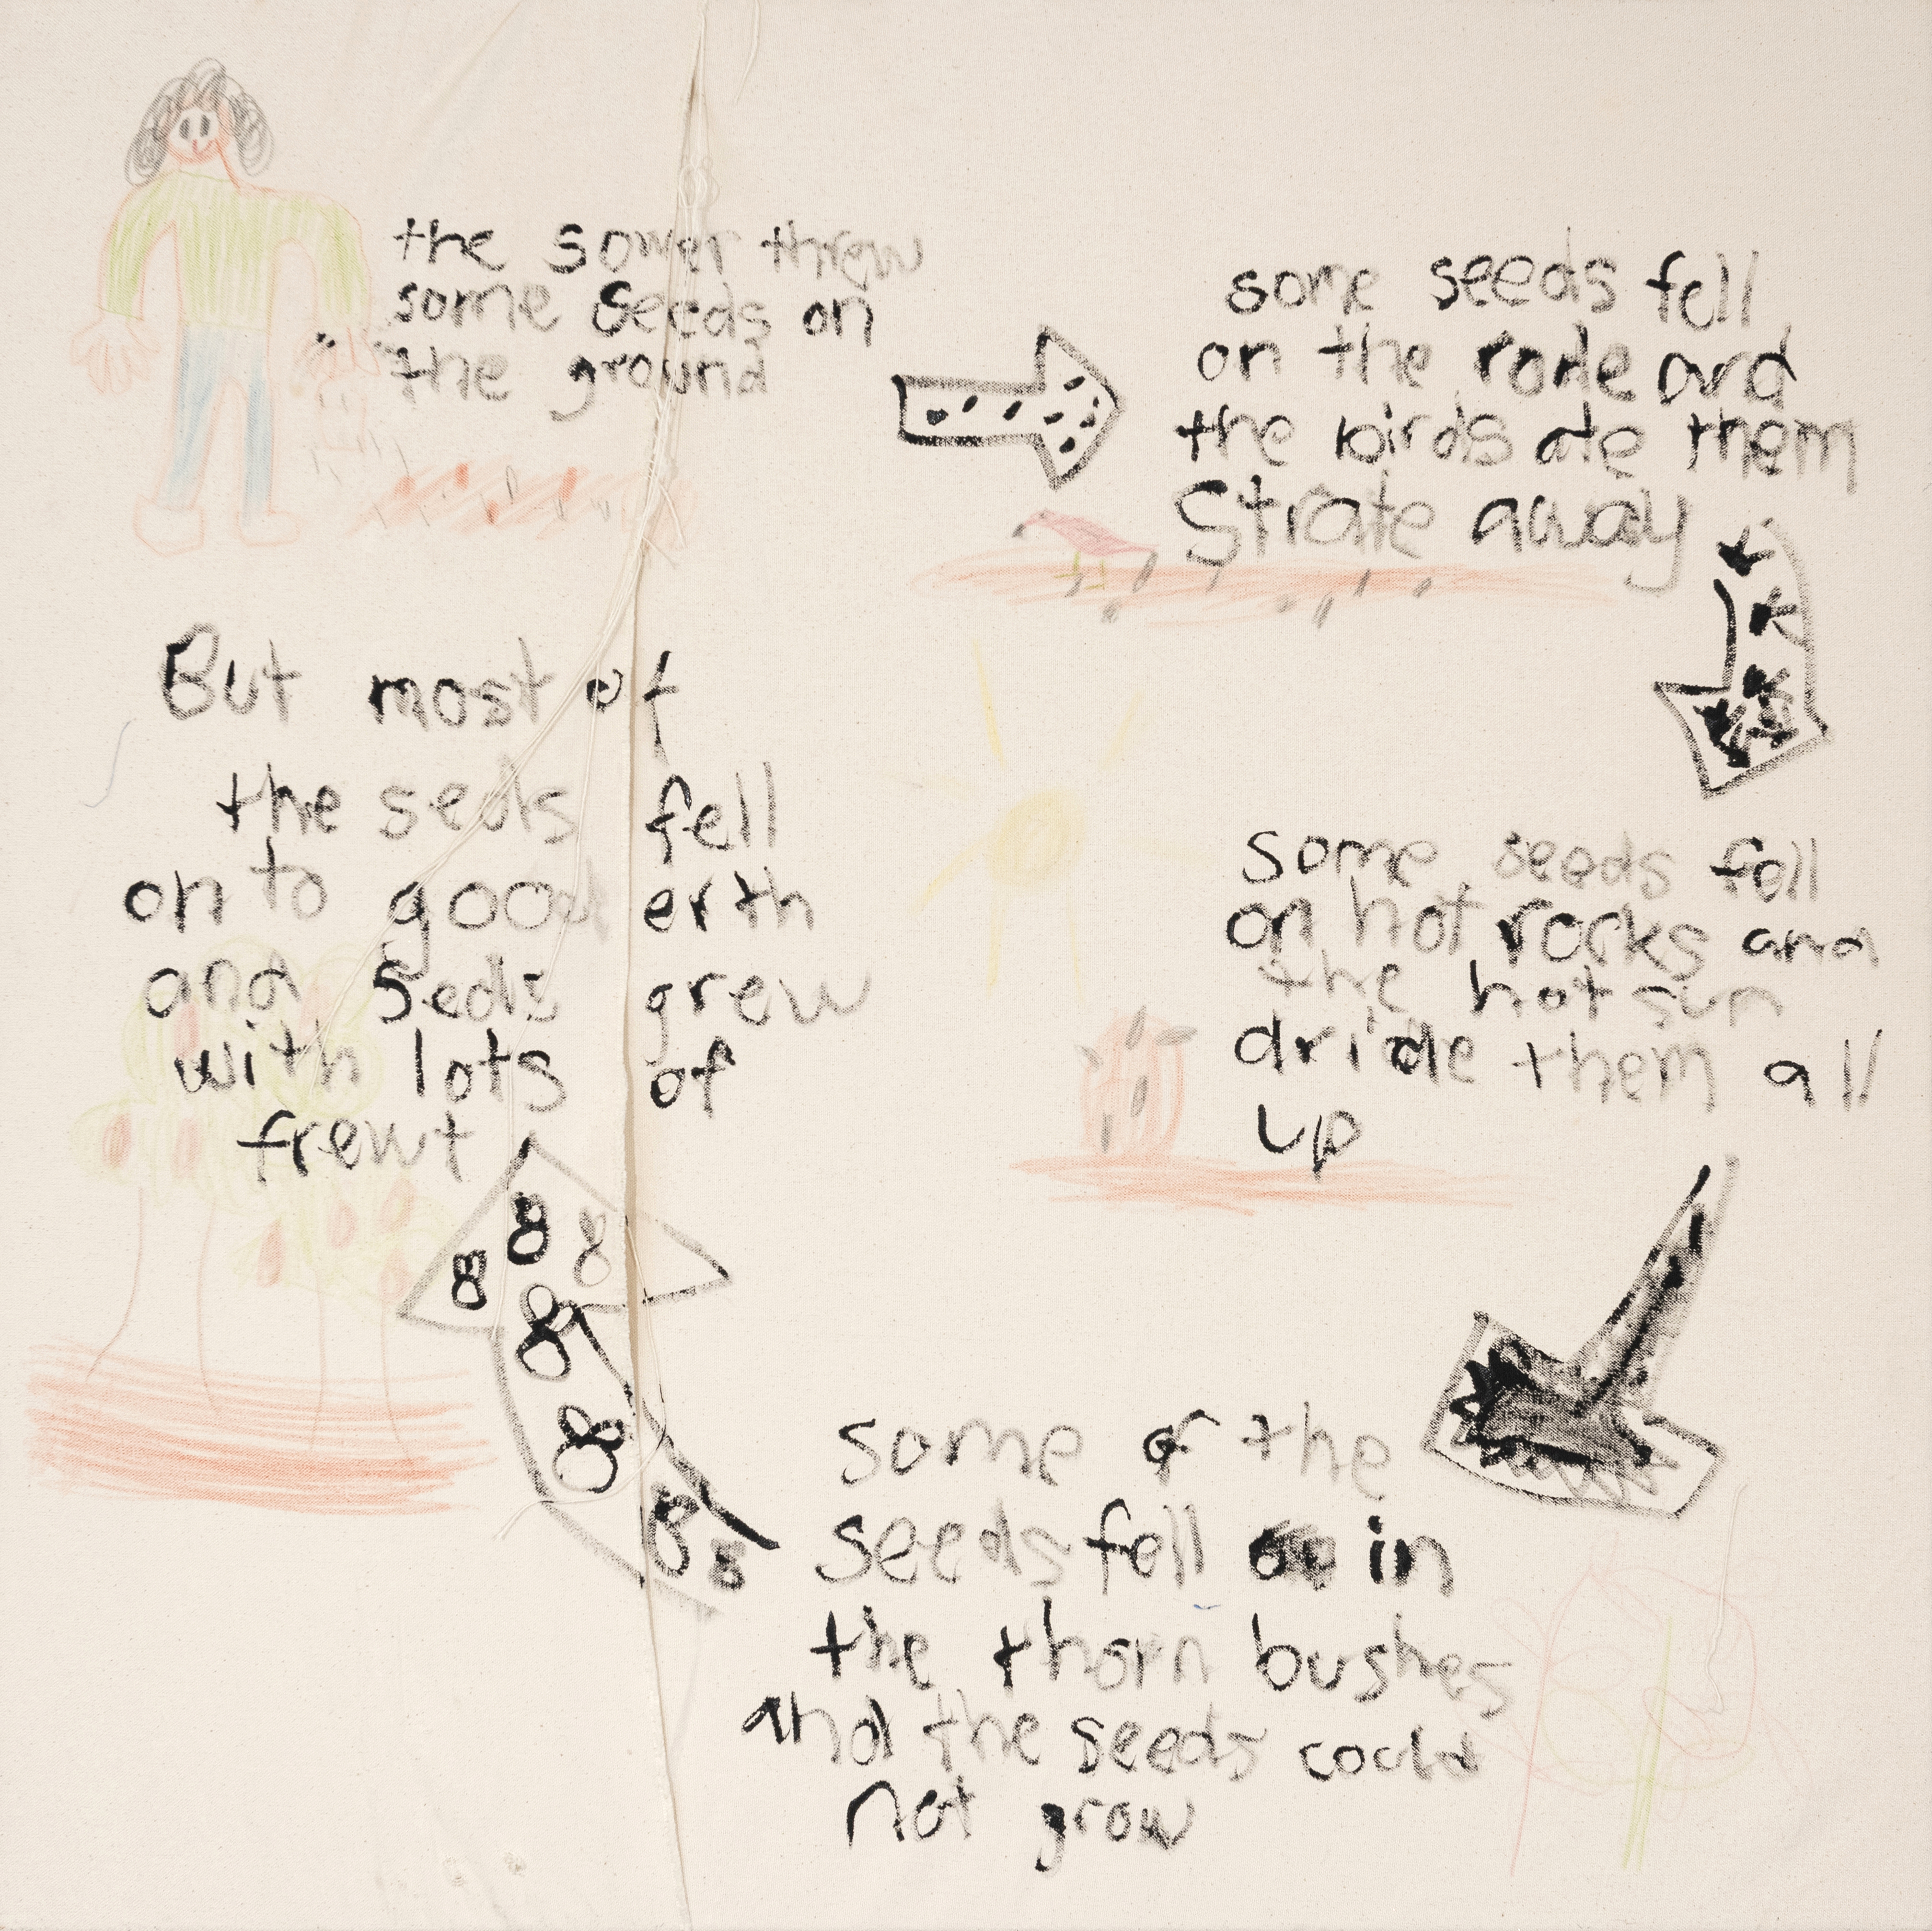 the sower threw
some seeds on
the ground
some seeds fell
on the rode and
the birds ate them
Strate away
some seeds fell
on hot rocks and
the hot sun
dride them all
up
some of the
seeds fell in
the thorn bushes
and the seeds could
not grow
But most of
the seds fell
on to good erth
and Seds grew
with lots of
frewt